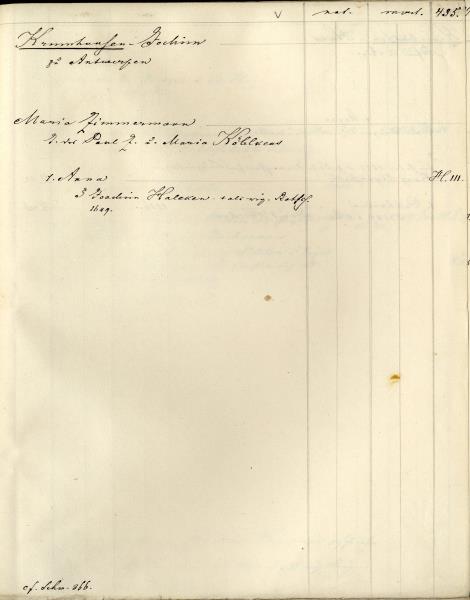 V nat. mort. 435.
Krumhausen Jochim
zu Antwerpen
Maria Zimmermann
T. des Paul Z. u. Maria Köhlers
1. Anna H. 111.
3 Joachim Halcken
1649.
cf. Schr. 366.